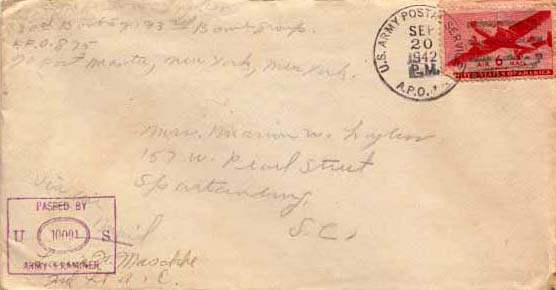 Bomb Group.
A.P.O. 875
c/o Post Master, New York, New York.
U.S. ARMY POSTAL SERVICE
SEP
20
1942
P.M.
A.P.O.
6
AIR MAIL
UNITED STATES OF AMERICA
Mrs. Marion W.
157 W. Pearl Street
Spartanburg,
S.C.
Via
Mail
PASSED BY
U 10091 S
ARMY EXAMINER
Maschke
2nd Lt. A.C.